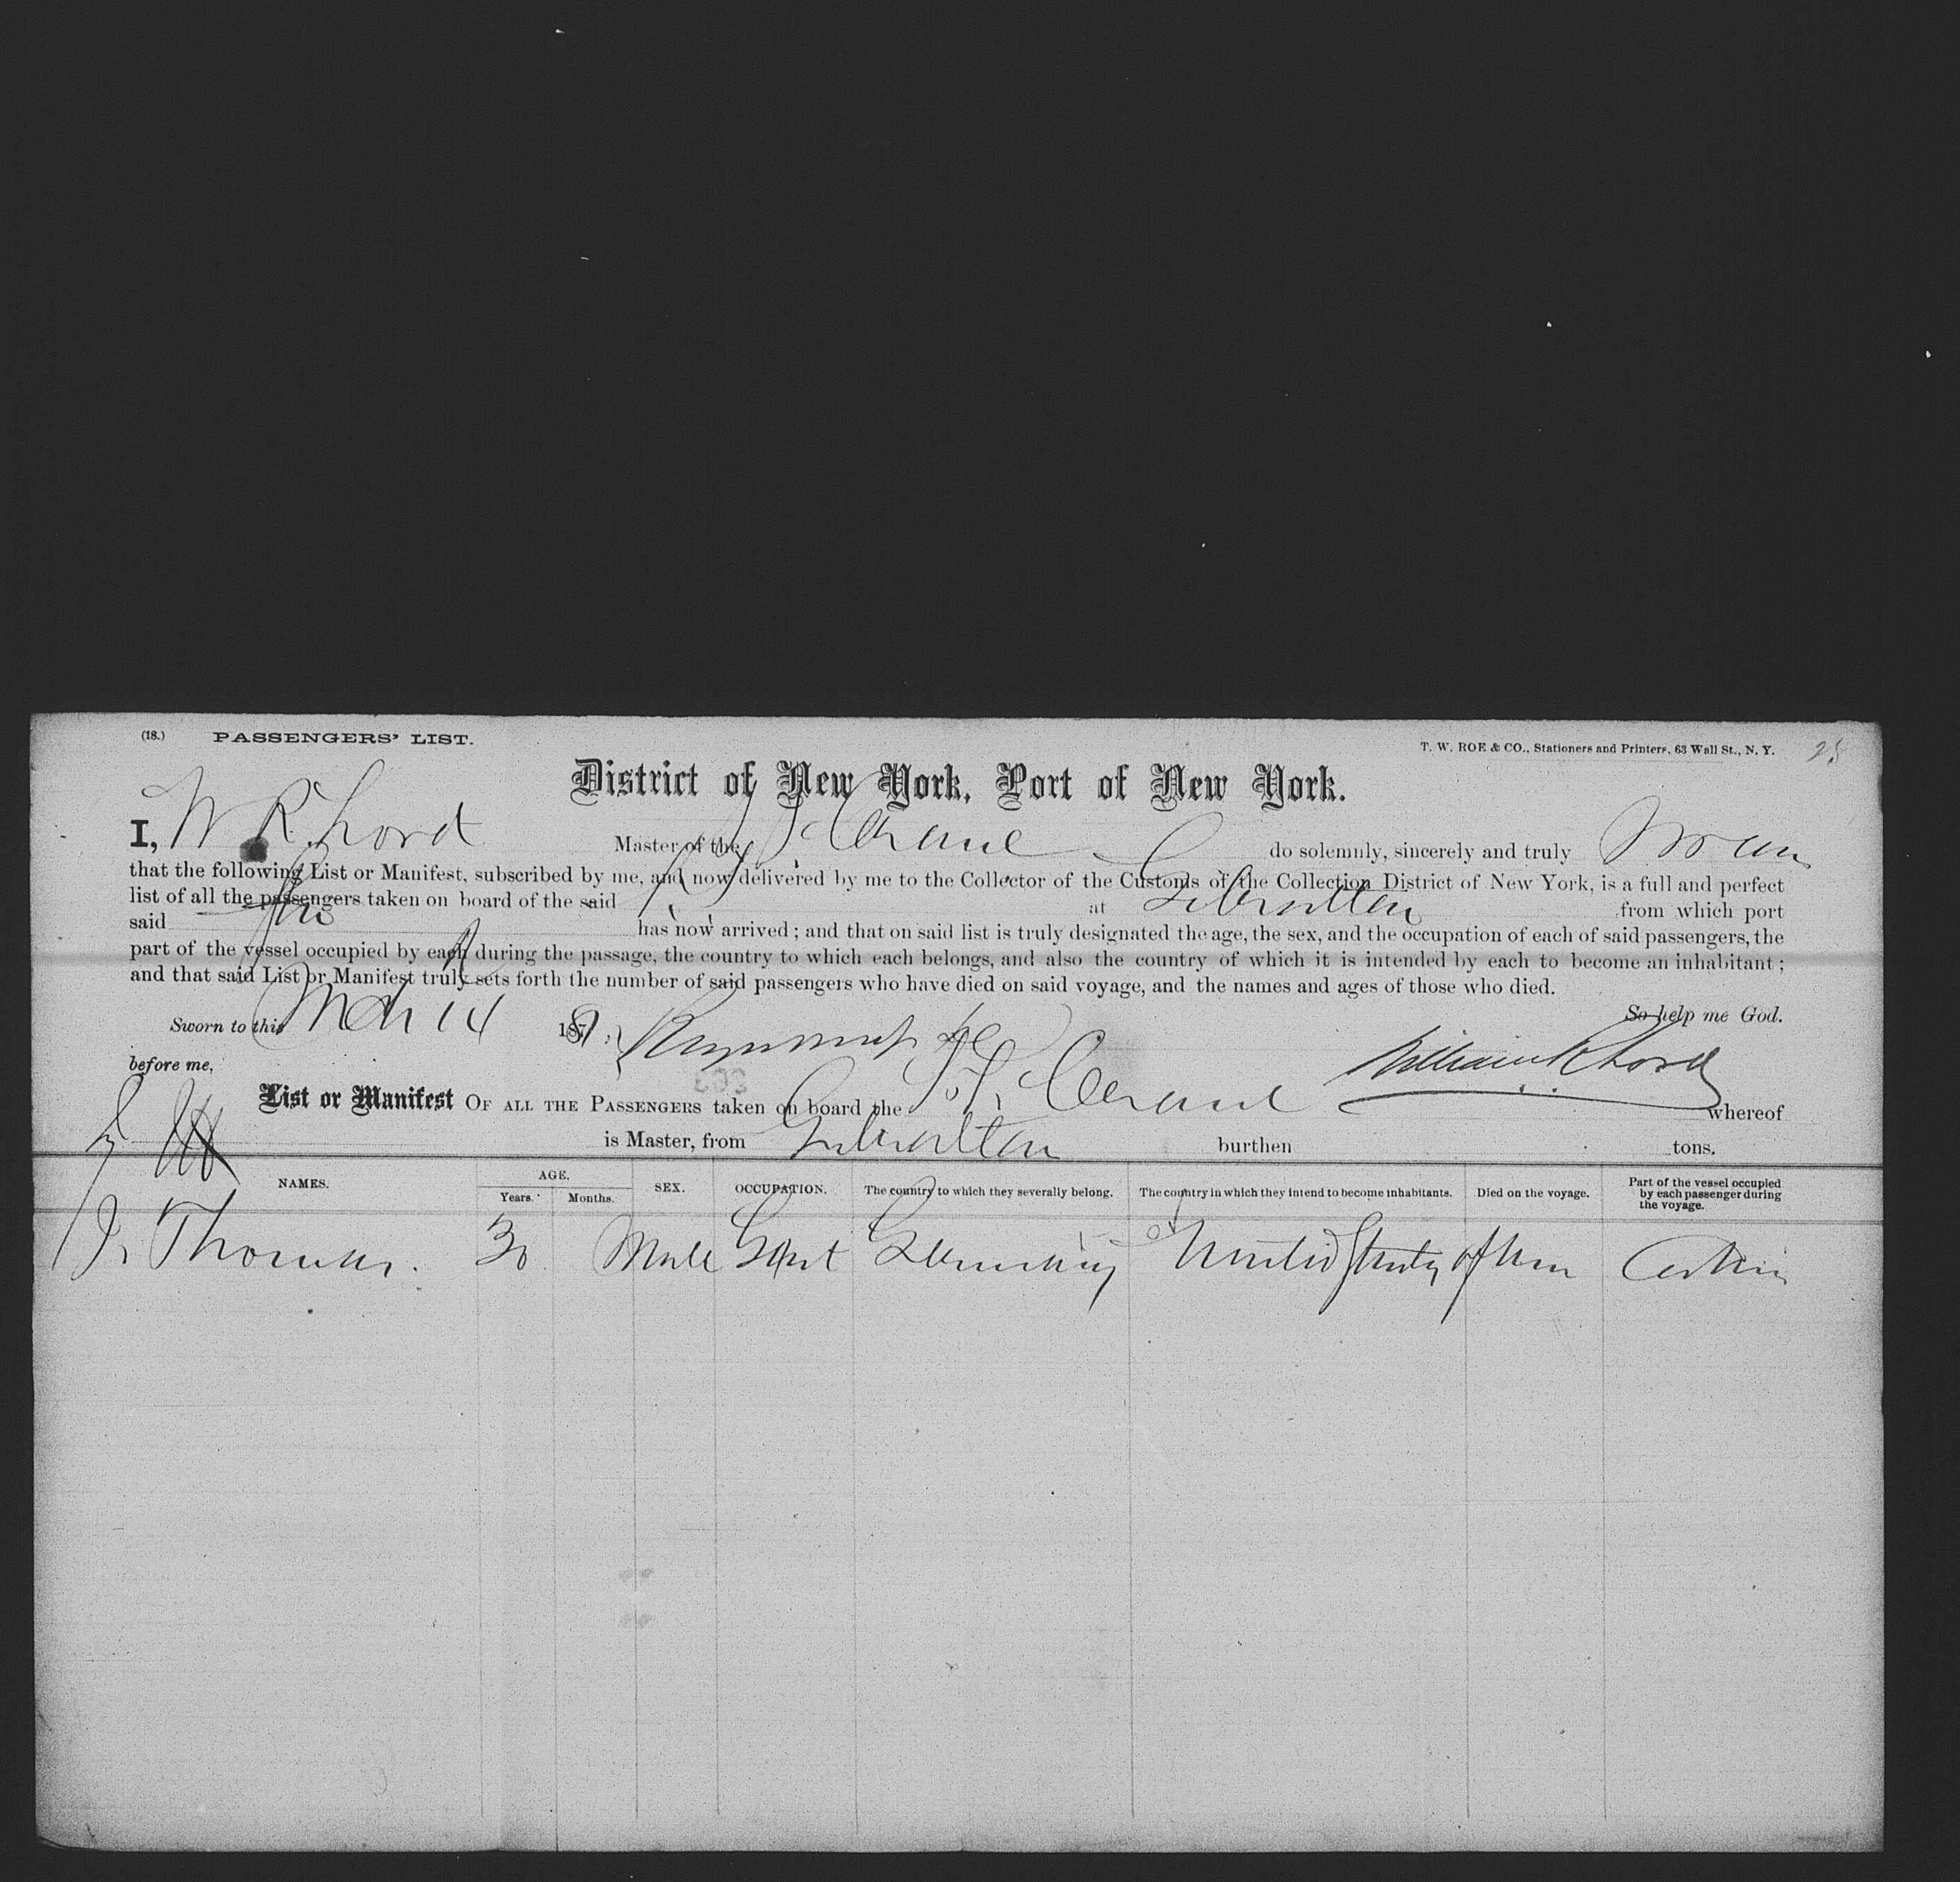 (18.) PASSENGERS' LIST. T. W. ROE & CO., Stationers and Printers, 63 Wall St., N. Y. 25
District of New York, Port of New York.
I, W R Lord Master of the do solemnly, sincerely and truly Swear
that the following List or Manifest, subscribed by me, and now delivered by me to the Collector of the Customs of the Collection District of New York, is a full and perfect
list of all the passengers taken on board of the said at Gibraltar from which port
said has now arrived; and that on said list is truly designated the age, the sex, and the occupation of each of said passengers, the
part of the vessel occupied by each during the passage, the country to which each belongs, and also the country of which it is intended by each to become an inhabitant;
and that said List or Manifest truly sets forth the number of said passengers who have died on said voyage, and the names and ages of those who died.
So help me God.
Sworn to this Mch 14 187
before me, William R Lord
List or Manifest OF ALL THE PASSENGERS taken on board the whereof
is Master, from Gibraltar burthen tons.
NAMES. AGE. SEX. OCCUPATION. The country to which they severally belong. The country in which they intend to become inhabitants. Died on the voyage. Part of the vessel occupied by each passenger during the voyage.
Years. Months.
J. Thomas. 30 Male Gent Germany United States of Am Cabin